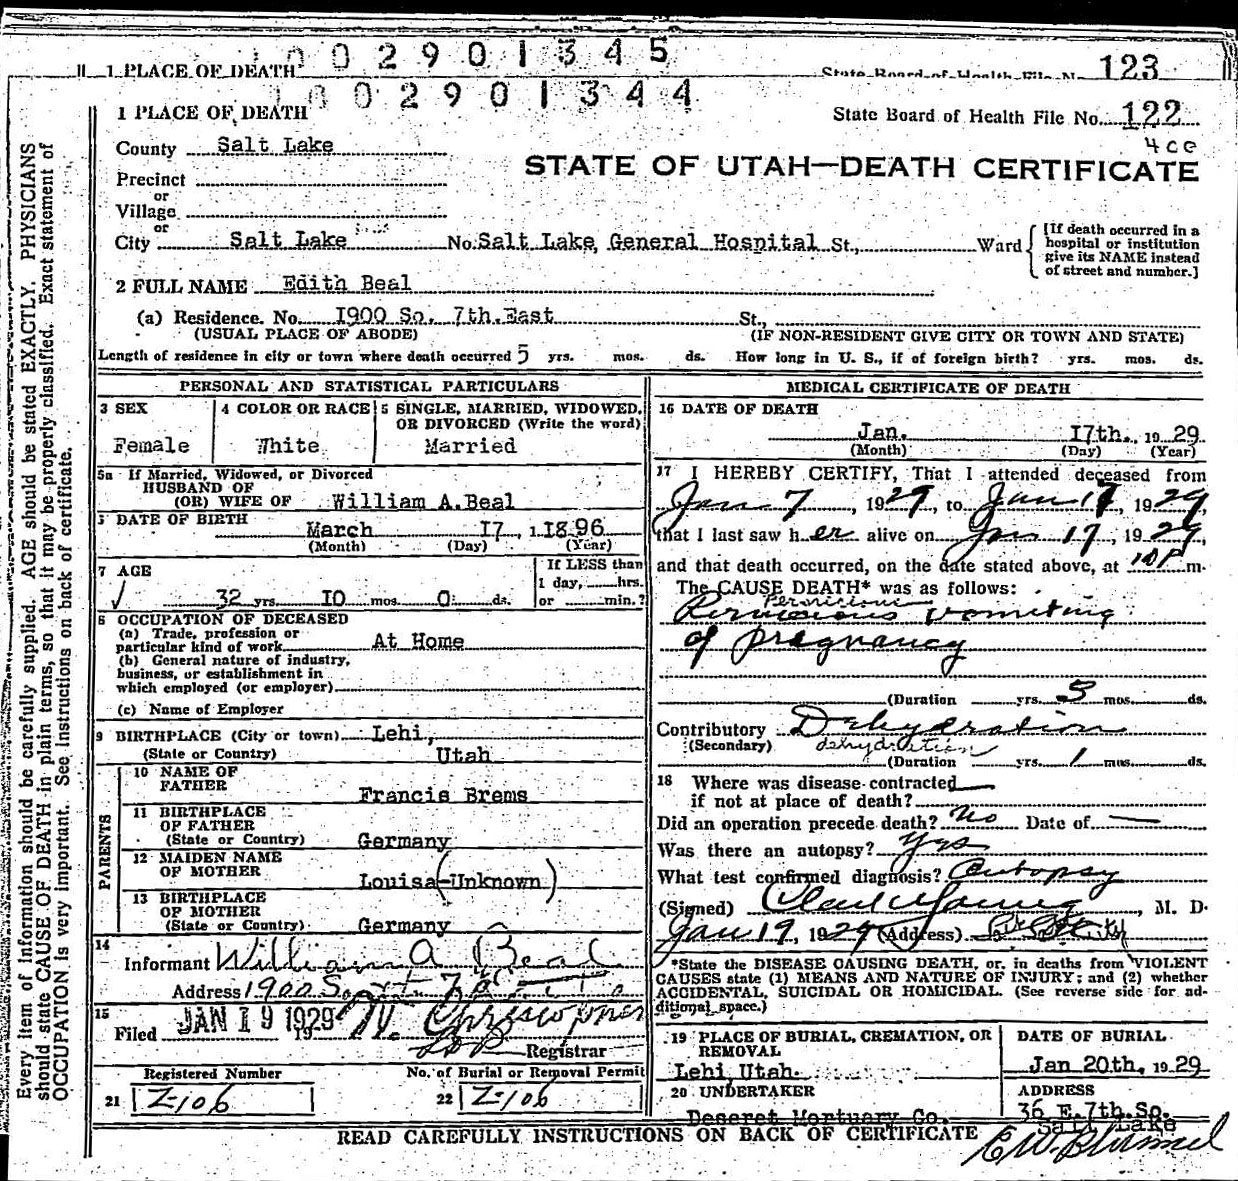 1002901345
11 1 PLACE OF DEATH State Board of Health File No. 123
1002901344
1 PLACE OF DEATH State Board of Health File No. 122
4 c c
County Salt Lake
STATE OF UTAH—DEATH CERTIFICATE
Precinct
or
Village
or
City Salt Lake No. Salt Lake, General Hospital St., Ward
[If death occurred in a
hospital or institution
give its NAME instead
of street and number.]
2 FULL NAME Edith Beal
(a) Residence. No. 1900 So. 7th.East St.,
(USUAL PLACE OF ABODE) (IF NON-RESIDENT GIVE CITY OR TOWN AND STATE)
Length of residence in city or town where death occurred 5 yrs. mos. ds. How long in U. S., if of foreign birth? yrs. mos. ds.
PERSONAL AND STATISTICAL PARTICULARS
3 SEX 4 COLOR OR RACE 5 SINGLE, MARRIED, WIDOWED,
OR DIVORCED (Write the word)
Female White Married
5a If Married, Widowed, or Divorced
HUSBAND OF
(OR) WIFE OF William A.Beal
DATE OF BIRTH
March 17, 1896
(Month) (Day) (Year)
7 AGE If LESS than
1 day, hrs.
or min.?
32 yrs. 10 mos. 0 ds.
OCCUPATION OF DECEASED
(a) Trade, profession or
particular kind of work At Home
(b) General nature of industry,
business, or establishment in
which employed (or employer)
(c) Name of Employer
9 BIRTHPLACE (City or town) Lehi,
(State or Country) Utah
PARENTS
10 NAME OF
FATHER Francis Brems
11 BIRTHPLACE
OF FATHER
(State or Country) Germany
12 MAIDEN NAME
OF MOTHER Louisa (Unknown)
13 BIRTHPLACE
OF MOTHER
(State or Country) Germany
14
Informant William A Beal
Address 1900 So.
15
Filed JAN 19 1929
19 Registrar
Registered Number No. of Burial or Removal Permit
21 Z-106 22 Z-106
MEDICAL CERTIFICATE OF DEATH
16 DATE OF DEATH
Jan. 17th., 1929
(Month) (Day) (Year)
17 I HEREBY CERTIFY, That I attended deceased from
Jan 7, 1929, to Jan 17, 1929,
that I last saw her alive on Jan 17, 1929,
and that death occurred, on the date stated above, at 10 P m.
The CAUSE DEATH* was as follows:
Pernicious
Pernicious vomiting
of pregnancy
(Duration yrs. 3 mos. ds.
Contributory Dehydration
(Secondary) dehydration
(Duration yrs. 1 mos. ds.
18 Where was disease contracted
if not at place of death?
Did an operation precede death? No Date of —
Was there an autopsy? Yes
What test confirmed diagnosis? Autopsy
(Signed) , M. D.
Jan 19, 1929 (Address)
*State the DISEASE CAUSING DEATH, or, in deaths from VIOLENT
CAUSES state (1) MEANS AND NATURE OF INJURY; and (2) whether
ACCIDENTAL, SUICIDAL OR HOMICIDAL. (See reverse side for ad-
ditional space.)
19 PLACE OF BURIAL, CREMATION, OR
REMOVAL
Lehi Utah.
DATE OF BURIAL
Jan 20th, 1929
20 UNDERTAKER
Deseret Mortuary Co.
ADDRESS
36 E.7th.So.
Salt Lake
READ CAREFULLY INSTRUCTIONS ON BACK OF CERTIFICATE
Every item of information should be carefully supplied. AGE should be stated EXACTLY. PHYSICIANS
should state CAUSE OF DEATH in plain terms, so that it may be properly classified. Exact statement of
OCCUPATION is very important. See instructions on back of certificate.